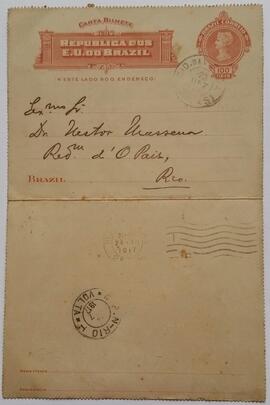 CARTA BILHETE
REPUBLICA DOS
E.U. DO BRAZIL
N'ESTE LADO SÓ O ENDEREÇO
BRAZIL CORREIO
100
REIS
Exmo Sr.
Dr. Nestor Massena
Redm d'O Paiz,
BRAZIL
Rio
1917
N-RIO
VOLTA
1917